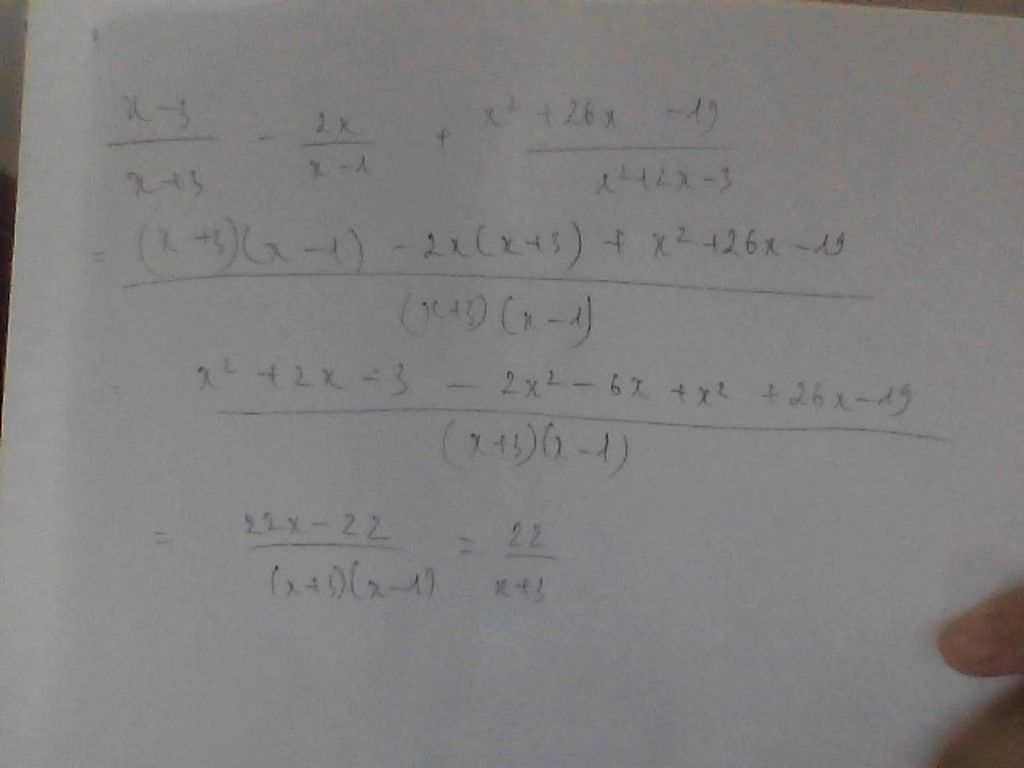 x-3 / x+3 - 2x / x-1 + x² +26x -19 / x²+2x-3
= (x +3)(x -1) -2x(x+3) + x² +26x -19 / (x+3)(x-1)
= x² +2x -3 - 2x² - 6x +x² +26x -19 / (x+3)(x-1)
= 22x - 22 / (x+3)(x-1) = 22 / x+3